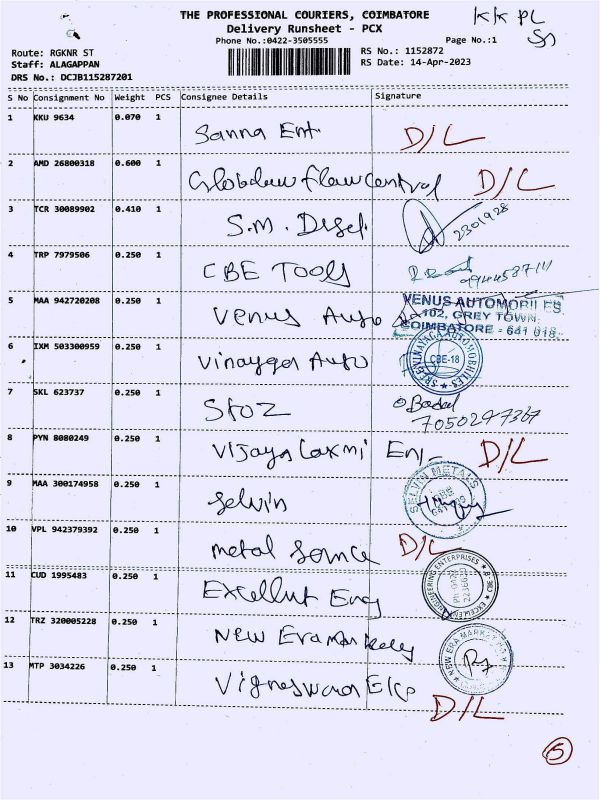 THE PROFESSIONAL COURIERS, COIMBATORE
K K PL
Delivery Runsheet - PCX
Phone No.:0422-3505555
Page No.:1
Route: RGKNR ST
RS No.: 1152872
Staff: ALAGAPPAN
RS Date: 14-Apr-2023
DRS No.: DCJB115287201
S No Consignment No Weight PCS Consignee Details Signature
1 KKU 9634 0.070 1 Sanna Ent. D/L
2 AMD 26800318 0.600 1 Globalaw flow central D/L
3 TCR 30089902 0.410 1 S.M. Diesel 2301928
4 TRP 7979506 0.250 1 CBE Tools
5 MAA 942720208 0.250 1 Venus Auto VENUS AUTOMOBILES
102, GREY TOWN,
COIMBATORE - 641 018.
6 IXM 503300959 0.250 1 Vinayaga Auto SREE VINAYAGA AUTOMOBILES CBE-18
7 SKL 623737 0.250 1 Stoz 7050297367
8 PYN 8080249 0.250 1 Vijaya Laxmi Enj- D/L
9 MAA 300174958 0.250 1 Selvin SELVIN METALS
10 VPL 942379392 0.250 1 metal Source D/L
11 CUD 1995483 0.250 1 Excellent Eng ENGINEERING ENTERPRISES
12 TRZ 320005228 0.250 1 New Era Markets NEW ERA MARKETING
13 MTP 3034226 0.250 1 Vigneswara Elec D/L
5